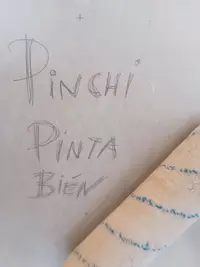 PiNCHi
PiNTA
BiÉN